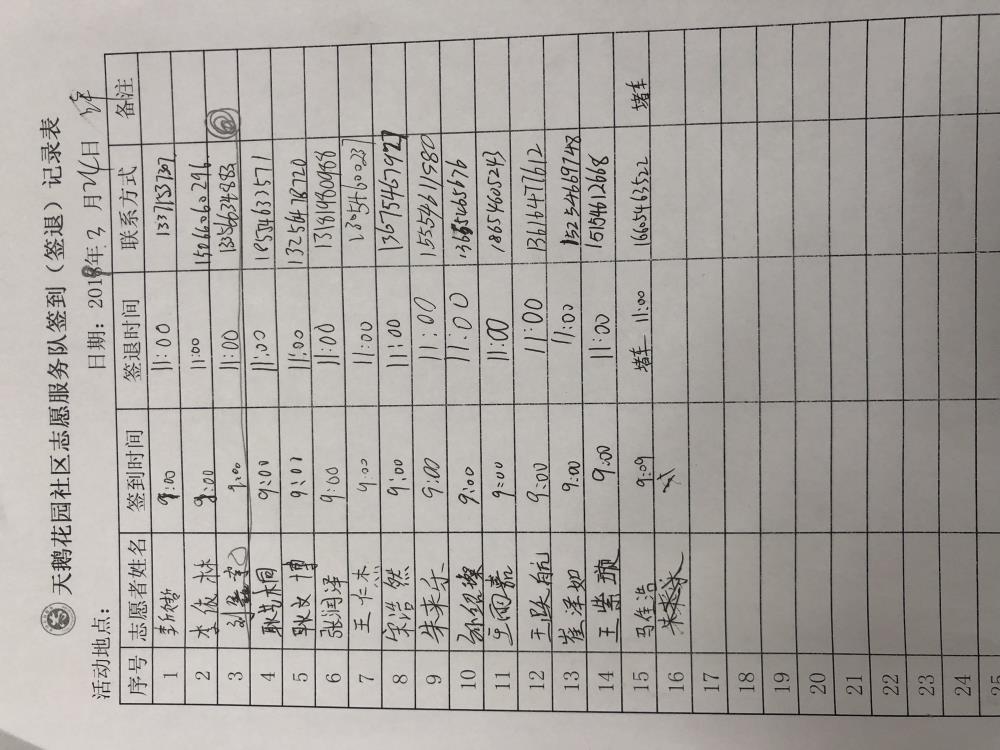 天鹅花园社区志愿服务队签到（签退）记录表
活动地点： 日期：2018年3月24日
序号 志愿者姓名 签到时间 签退时间 联系方式 备注
1 9:00 11:00
2 李俊林 9:00 11:00 15066060296
3 9:00 11:00 13356634883
4 9:00 11:00 18554633571
5 9:01 11:00 13256478720
6 张润泽 9:00 11:00 13181980988
7 9:00 11:00
8 宋浩然 9:00 11:00 13675467927
9 朱来乐 9:00 11:00 15554611980
10 9:00 11:00
11 王雨嘉 9:00 11:00 18654605243
12 王跃航 9:00 11:00 13616477612
13 崔泽如 9:00 11:00 15254669748
14 9:00 11:00 15154612668
15 马佳浩 9:09 堵车 11:00 16605463522 堵车
16
17
18
19
20
21
22
23
24
25